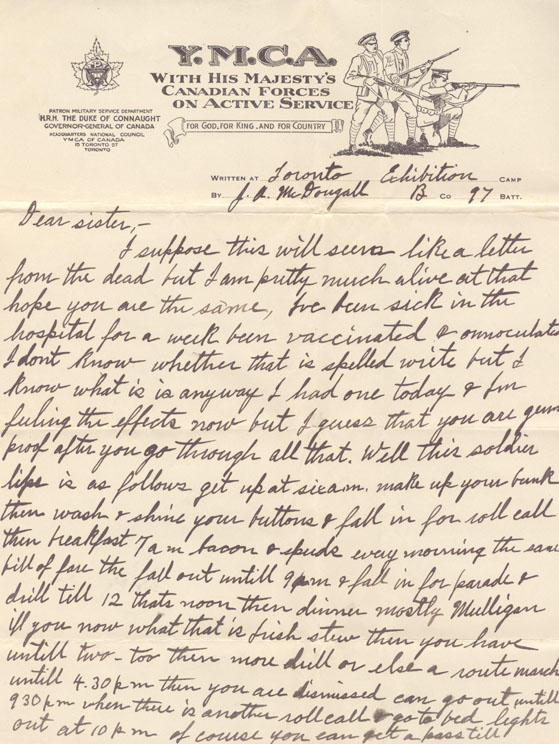 Y.M.C.A.
WITH HIS MAJESTY'S
CANADIAN FORCES
ON ACTIVE SERVICE
FOR GOD, FOR KING, AND FOR COUNTRY
PATRON MILITARY SERVICE DEPARTMENT
H.R.H. THE DUKE OF CONNAUGHT
GOVERNOR-GENERAL OF CANADA
HEADQUARTERS NATIONAL COUNCIL
YMCA OF CANADA
15 TORONTO ST
TORONTO
WRITTEN AT Toronto Exhibition CAMP
BY J. A. McDougall B Co 97 BATT.
Dear sister,-
I suppose this will seem like a letter
from the dead but I am pretty much alive at that
hope you are the same, I've been sick in the
hospital for a week been vaccinated & onnoculated
I dont know whether that is spelled write but I
know what is is anyway I had one today & I'm
feeling the effects now but I guess that you are gum
proof after you go through all that. Well this soldier
life is as follows get up at six a.m. make up your bunk
then wash & shine your buttons & fall in for roll call
then breakfast 7 am bacon & spuds every morning the same
bill of fare the fall out untill 9 pm & fall in for parade &
drill till 12 thats noon then dinner mostly Mulligan
if you now what that is Irish stew then you have
untill two - too then more drill or else a route march
untill 4.30 pm then you are dismissed can go out untill
930 pm when there is another roll call & go to bed lights
out at 10 pm of course you can get a pass till